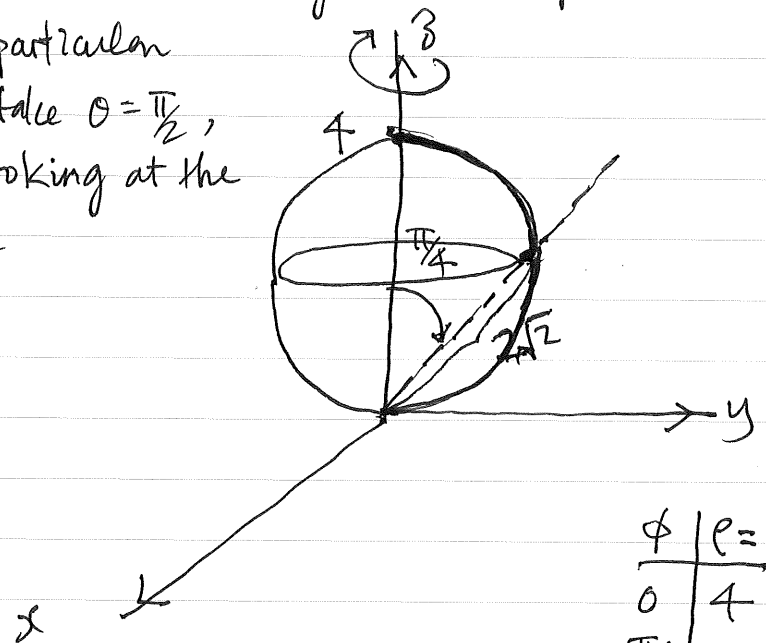 particular
take θ = π/2,
oking at the
z
4
π/4
2√2
y
x
ϕ | ρ =
0 | 4